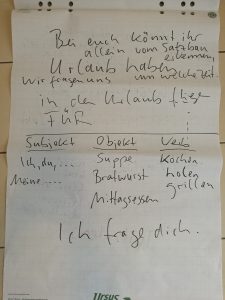 Bei euch könnt ihr
allein vom Satzbau
erkennen,
Urlaub haben
wir fragen uns um welche Zeit
in den Urlaub fliegen
FÜR
Subjekt Objekt Verb
Ich, du, ... Suppe kochen
Meine .... Bratwurst holen
Mittagsessen grillen
Ich frage dich.
Ursus